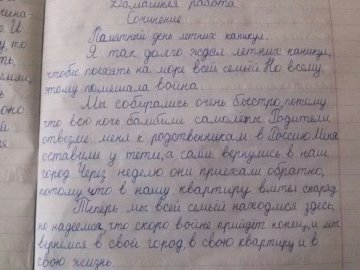 Домашняя работа
Сочинение
Памятный день летних каникул.
Я так долго ждал летних каникул,
чтобы поехать на море всей семьёй Но всему
этому помешала война.
Мы собирались очень быстро, потому
что всю ночь бомбили самолёты. Родители
отвезли меня к родственникам в Россию Меня
оставили у тёти, а сами вернулись в наш
город Через неделю они приехали обратно,
потому что в нашу квартиру влетел снаряд.
Теперь мы всей семьёй находимся здесь,
но надеемся, что скоро войне прийдёт конец, и мы
вернёмся в свой город, в свою квартиру и в
свою жизнь.